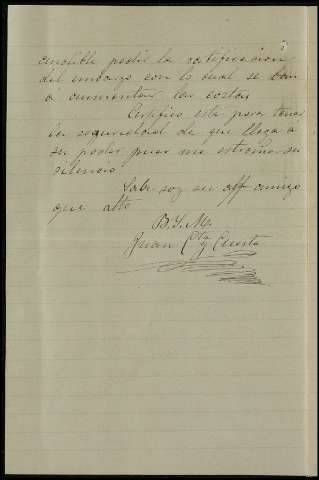 pedir la ratificacion
del embargo con lo cual se van
á aumentar las costas
Certifico esta para tener
la seguridad de que llega á
su poder pues me estraña su
silencio
Sabe soy su aff amigo
que atto
B.S.M.
Juan Cta y Cuesta